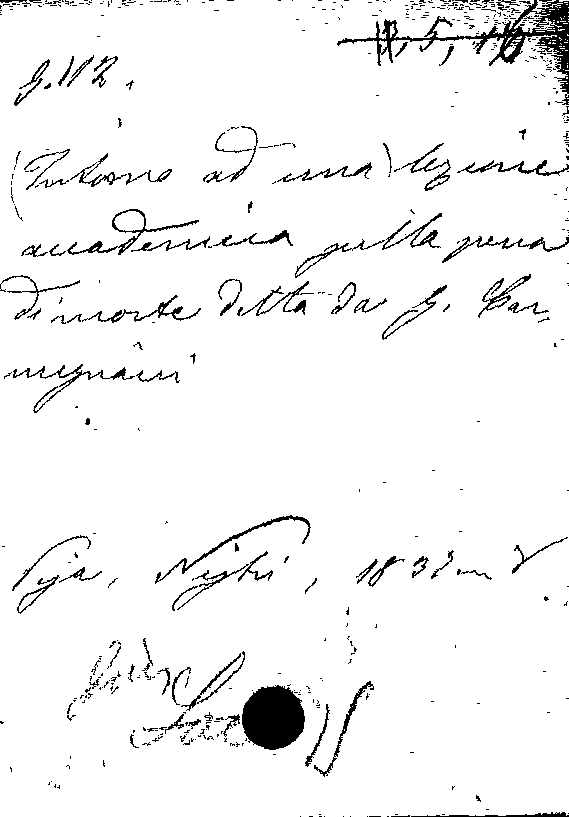 13, 5, 16
G. 112.
(Intorno ad una) lezione
accademica sulla pena
di morte detta da G. Car-
mignani
Pisa, Nistri, 1832 in 8